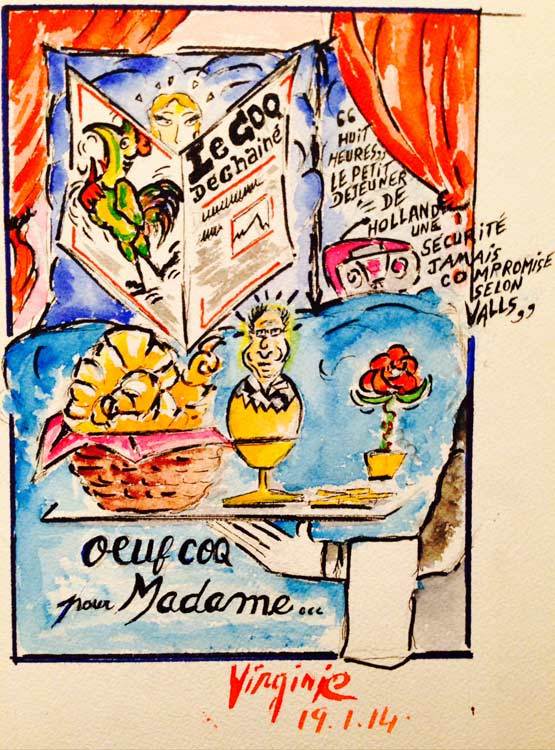 Le COQ
Dechainé
“
HUIT
HEURES,,
LE PETIT
DEJEUNER
DE
HOLLANDE
UNE
SÉCURITÉ
JAMAIS
COMPROMISE
SELON
VALLS,,
oeuf coq
pour Madame...
Virginie
19.1.14.